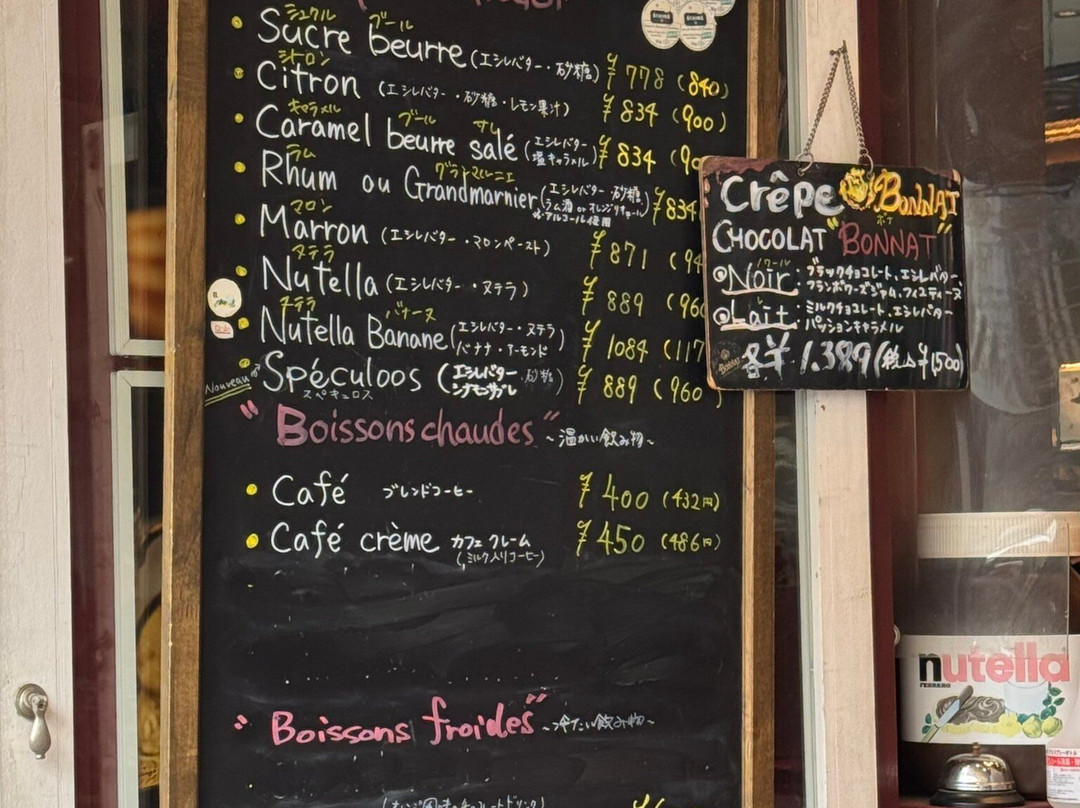 シュクル ブール
Sucre beurre (エシレバター・砂糖) ¥778 (840)
シトロン
Citron (エシレバター・砂糖・レモン果汁) ¥834 (900)
キャラメル ブール サレ
Caramel beurre salé (エシレバター・塩キャラメル) ¥834 (90
ラム グラマルニエ
Rhum ou Grandmarnier (エシレバター・砂糖
ラム酒 or オレンジリキュール
※アルコール使用 ¥834
マロン
Marron (エシレバター・マロンペースト) ¥871 (94
ヌテラ
Nutella (エシレバター・ヌテラ) ¥889 (960
ヌテラ バナーヌ
Nutella Banane (エシレバター・ヌテラ
バナナ・アーモンド) ¥1084 (117
Nouveau
Spéculoos (エシレバター・砂糖
シナモンサブレ) ¥889 (960
スペキュロス
"Boissons chaudes" ~温かい飲み物~
Café ブレンドコーヒー ¥400 (432円)
Café crème カフェクレーム
(ミルク入りコーヒー) ¥450 (486円)
"Boissons froides" ~冷たい飲み物~
Crêpe BONNAT
ボナ
CHOCOLAT "BONNAT"
ノワール
Noir・ブラックチョコレート、エシレバター
フランボワーズジャム、フィエティーヌ
レ
Lait・ミルクチョコレート、エシレバター
パッションキャラメル
各¥1.389 (税込¥1,500)
BONNAT
nutella
FERRERO